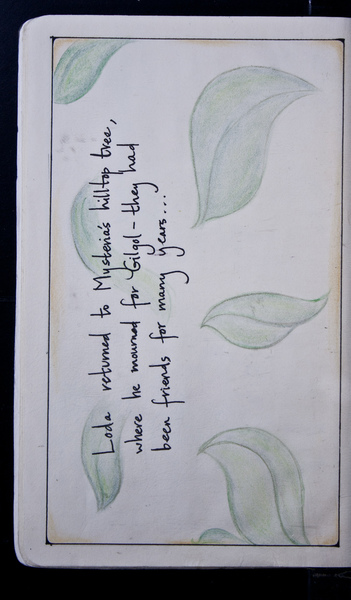 Loda returned to Mysteria's hilltop tree,
where he mourned for Gilgol - they had
been friends for many years...